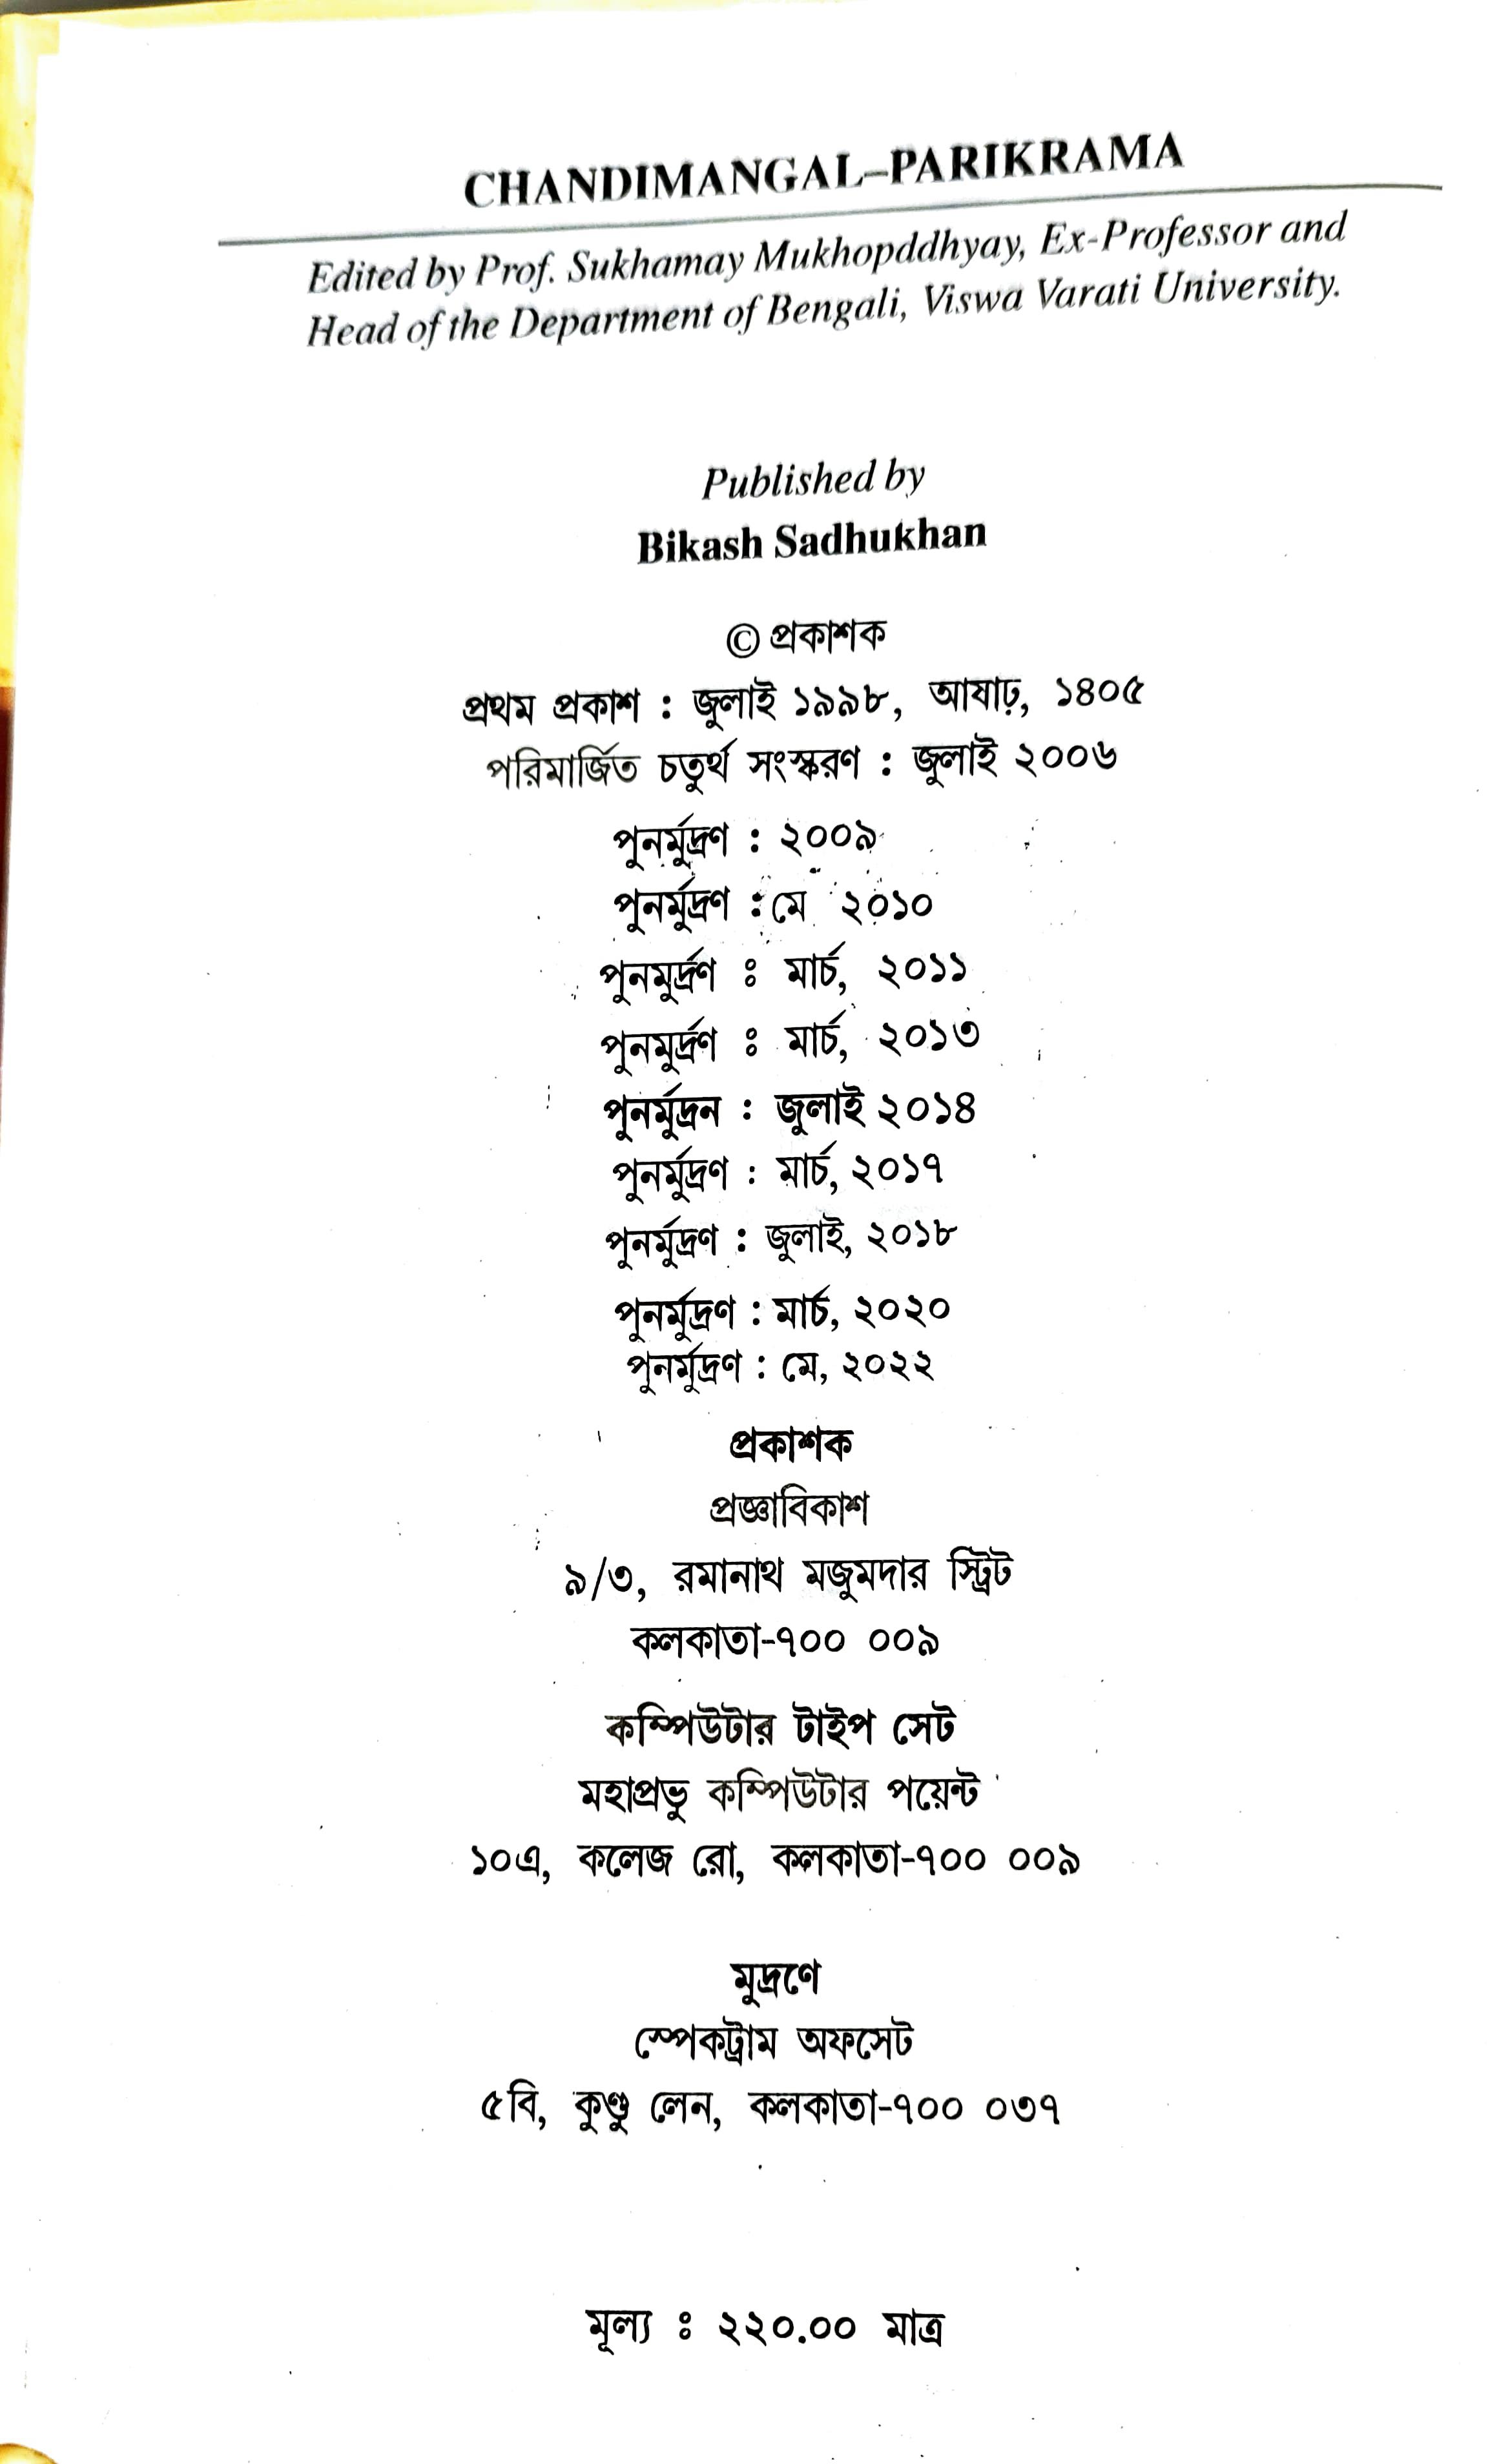 CHANDIMANGAL–PARIKRAMA
Edited by Prof. Sukhamay Mukhopddhyay, Ex-Professor and
Head of the Department of Bengali, Viswa Varati University.
Published by
Bikash Sadhukhan
© প্রকাশক
প্রথম প্রকাশ : জুলাই ১৯৯৮, আষাঢ়, ১৪০৫
পরিমার্জিত চতুর্থ সংস্করণ : জুলাই ২০০৬
পুনর্মুদ্রণ : ২০০৯
পুনর্মুদ্রণ : মে ২০১০
পুনমুর্দ্রণ ঃ মার্চ, ২০১১
পুনমুর্দ্রণ ঃ মার্চ, ২০১৩
পুনর্মুদ্রন : জুলাই ২০১৪
পুনর্মুদ্রণ : মার্চ, ২০১৭
পুনর্মুদ্রণ : জুলাই, ২০১৮
পুনর্মুদ্রণ : মার্চ, ২০২০
পুনর্মুদ্রণ : মে, ২০২২
প্রকাশক
প্রজ্ঞাবিকাশ
৯/৩, রমানাথ মজুমদার স্ট্রিট
কলকাতা-৭০০ ০০৯
কম্পিউটার টাইপ সেট
মহাপ্রভু কম্পিউটার পয়েন্ট
১০এ, কলেজ রো, কলকাতা-৭০০ ০০৯
মুদ্রণে
স্পেকট্রাম অফসেট
৫বি, কুণ্ডু লেন, কলকাতা-৭০০ ০৩৭
মূল্য ঃ ২২০.০০ মাত্র